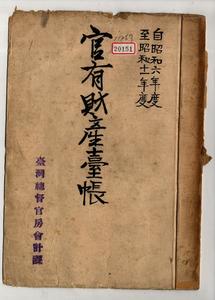 自昭和六年度
至昭和十一年度
20151
官有財産臺帳
臺灣總督官房會計課